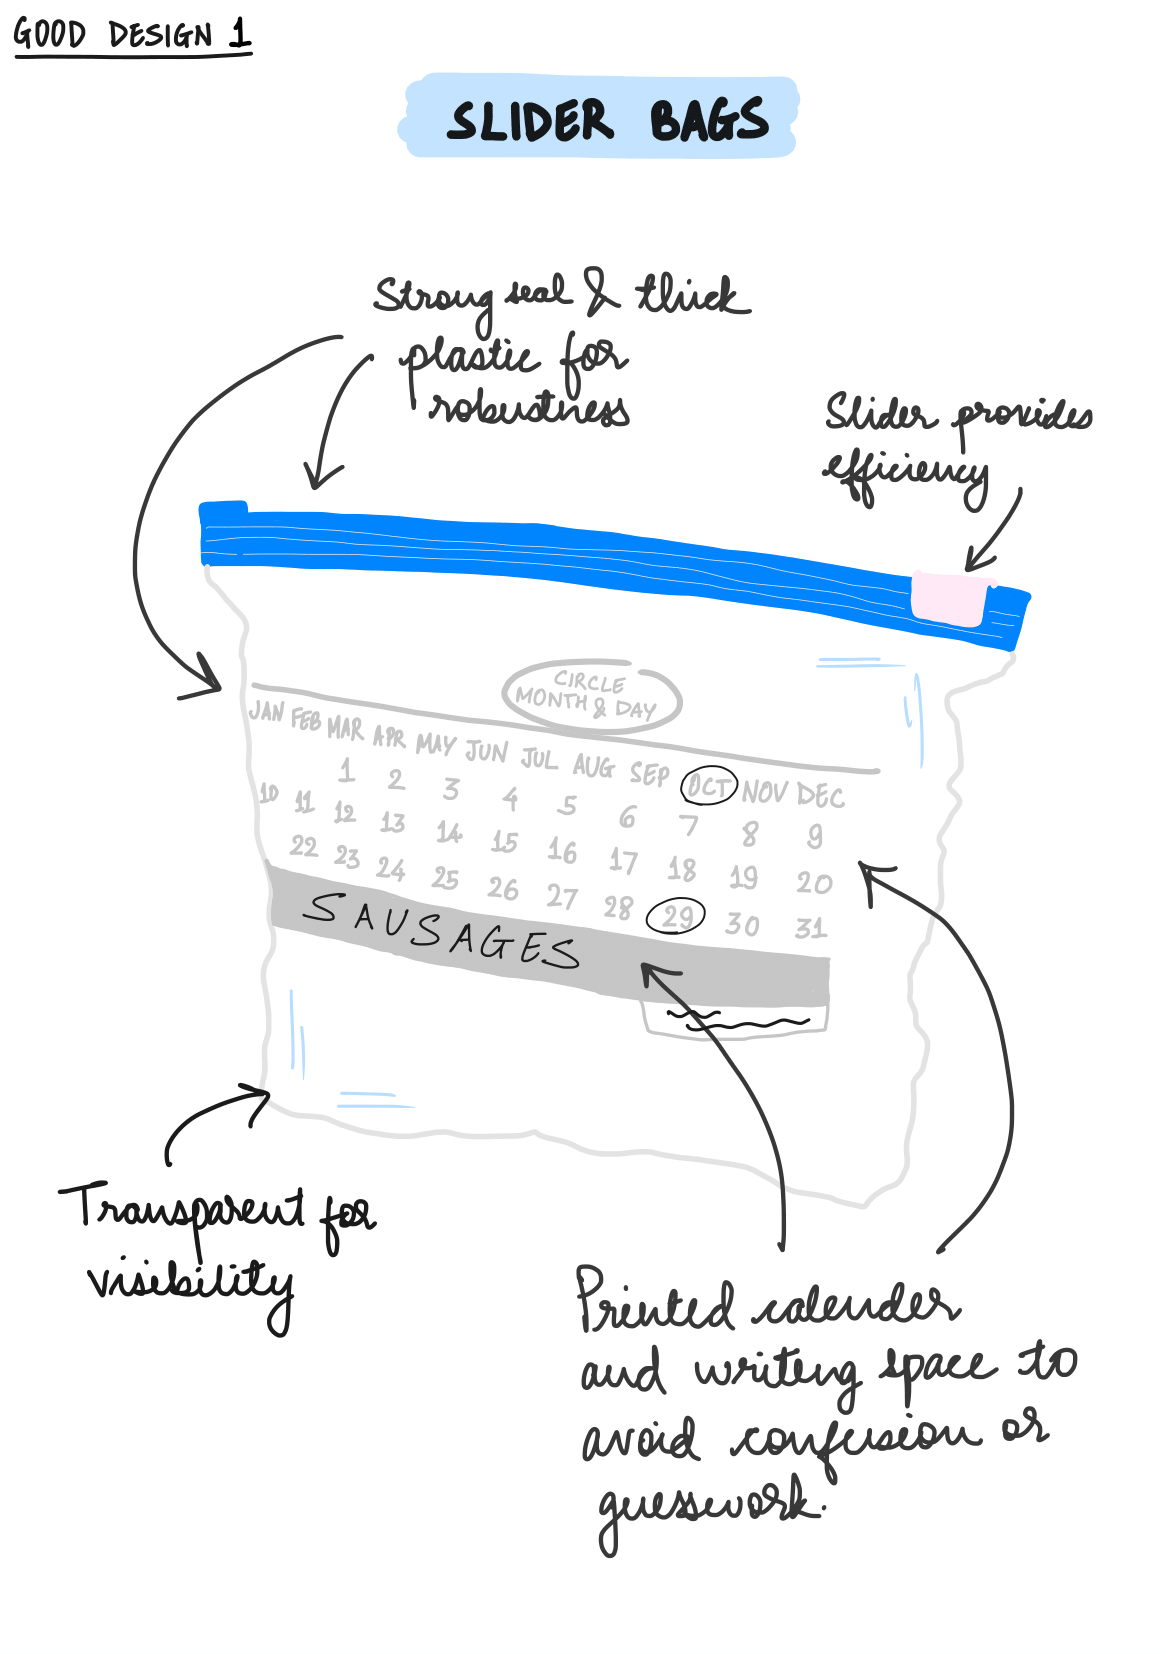 GOOD DESIGN 1
SLIDER BAGS
Strong seal & thick
plastic for
robustness
Slider provides
efficiency
CIRCLE
MONTH & DAY
JAN FEB MAR APR MAY JUN JUL AUG SEP OCT NOV DEC
1 2 3 4 5 6 7 8 9
10 11 12 13 14 15 16 17 18 19 20
22 23 24 25 26 27 28 29 30 31
SAUSAGES
Transparent for
visibility
Printed calender
and writing space to
avoid confusion or
guesswork.